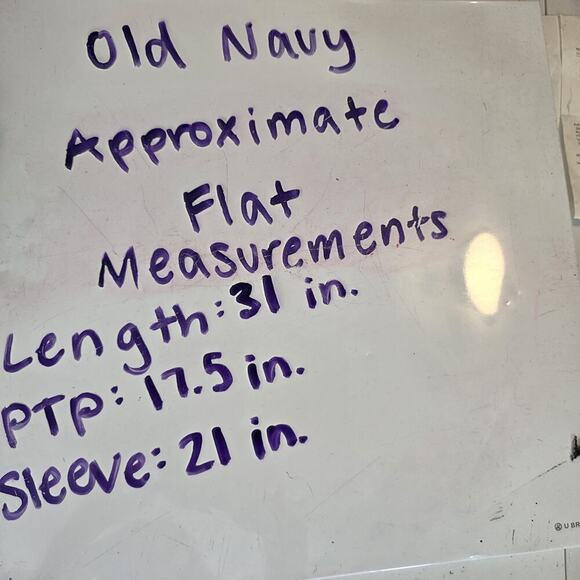 Old Navy
Approximate
Flat
Measurements
Length: 31 in.
PTP: 17.5 in.
Sleeve: 21 in.
U BR